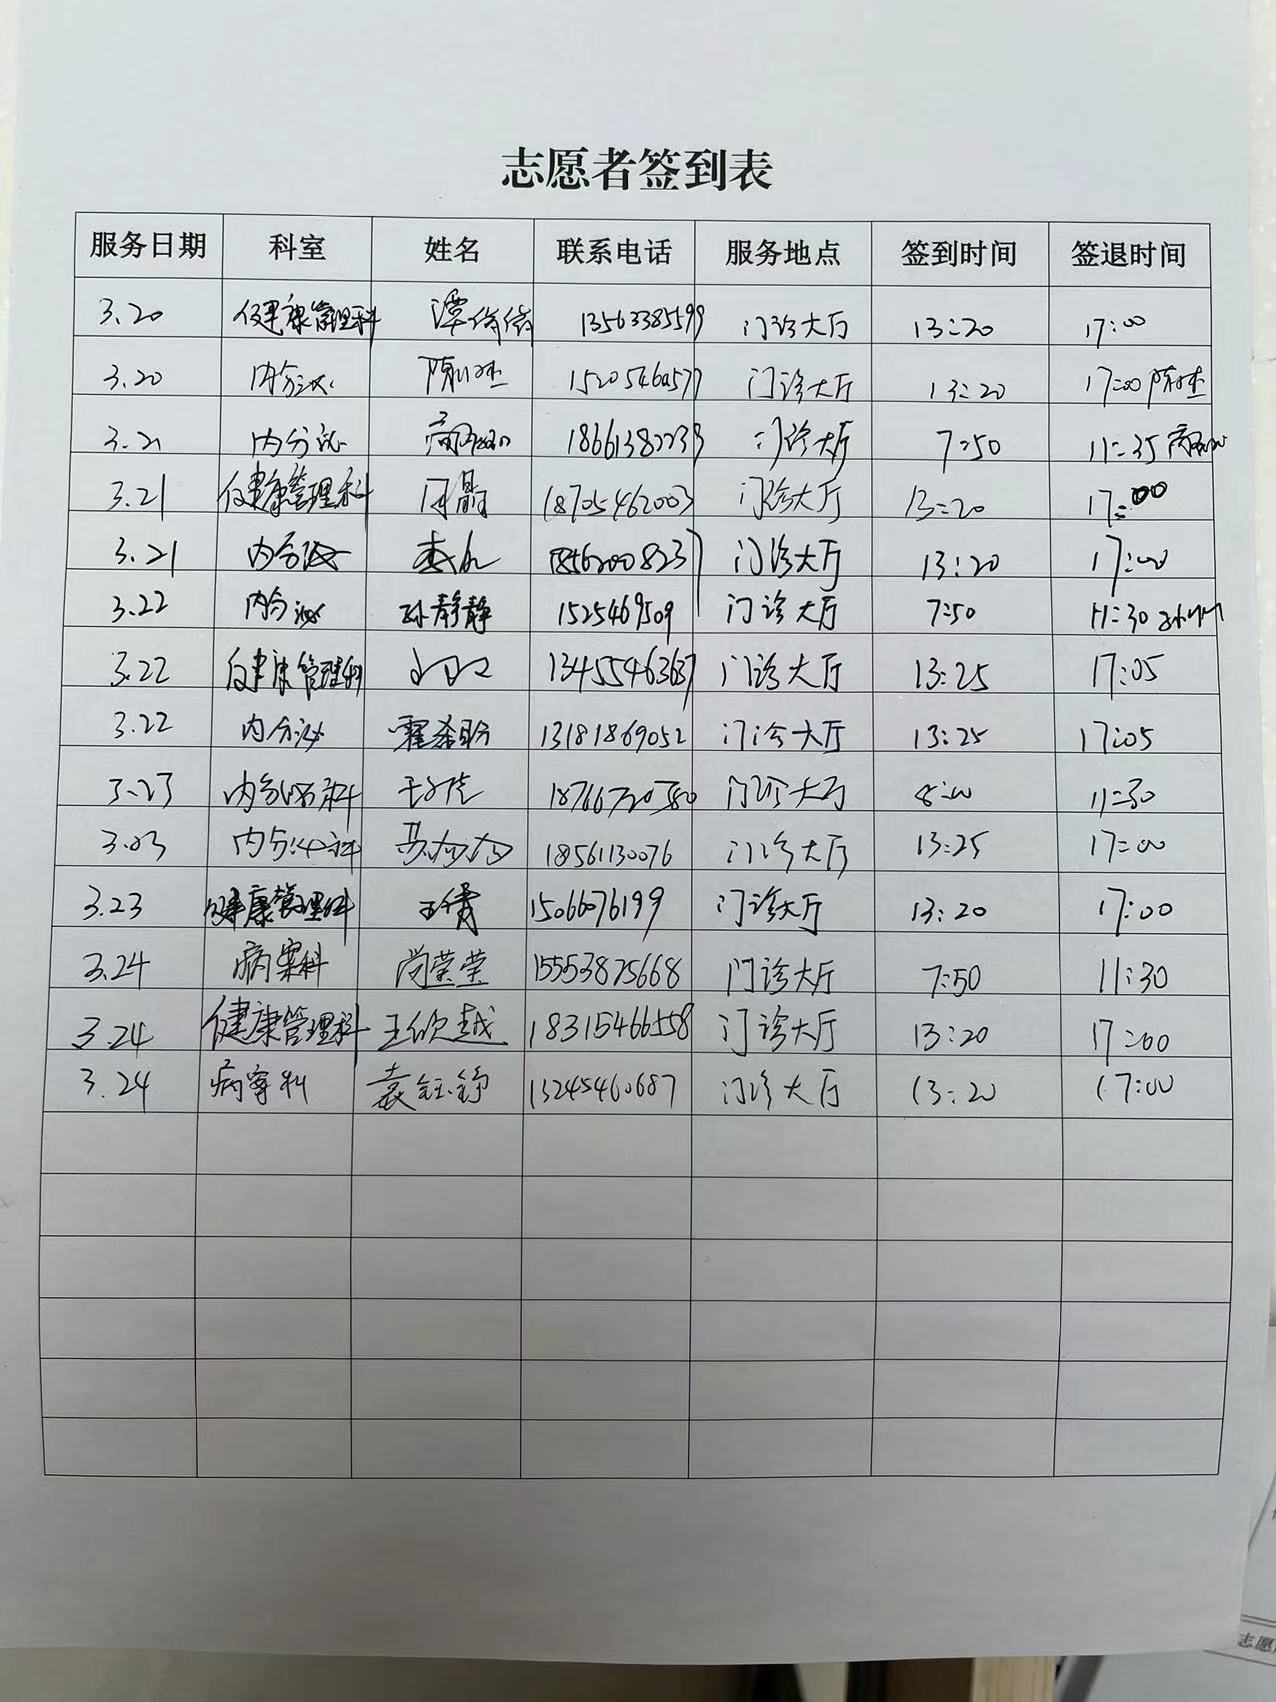 志愿者签到表
服务日期 科室 姓名 联系电话 服务地点 签到时间 签退时间
3.20 健康管理科 谭倩倩 13563385599 门诊大厅 13:20 17:00
3.20 内分泌 门诊大厅 13:20 17:00
3.21 内分泌 18661382239 门诊大厅 7:50 11:35
3.21 健康管理科 闫晶 18705462003 门诊大厅 13:20 17:00
3.21 内分泌 18562008237 门诊大厅 13:20 17:00
3.22 内分泌 孙静静 门诊大厅 7:50 11:30
3.22 健康管理科 13455463637 门诊大厅 13:25 17:05
3.22 内分泌 13181869052 门诊大厅 13:25 17:05
3.23 内分泌科 门诊大厅 8:00 11:30
3.23 内分泌科 18561130076 门诊大厅 13:25 17:00
3.23 健康管理科 王倩 15066076199 门诊大厅 13:20 17:00
3.24 病案科 尚荣荣 15553825668 门诊大厅 7:50 11:30
3.24 健康管理科 王欣越 18315466558 门诊大厅 13:20 17:00
3.24 病案科 袁钰铮 13245460687 门诊大厅 13:20 17:00
志愿